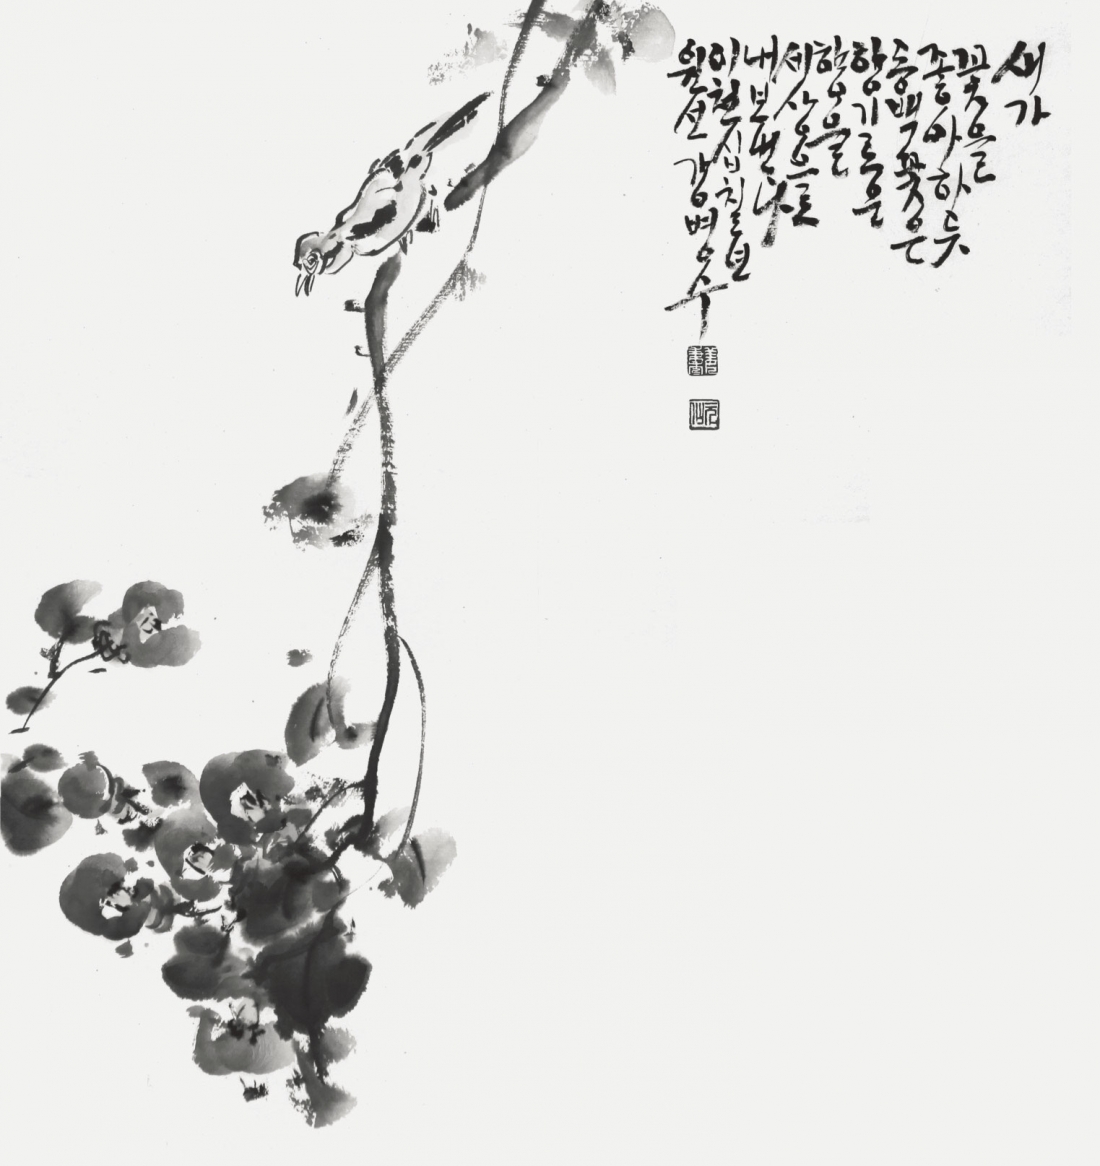 새가
꽃을
좋아하듯
동백꽃은
향기로운
향을
세상으로
내보낸다
이천십칠년
원선 강병수